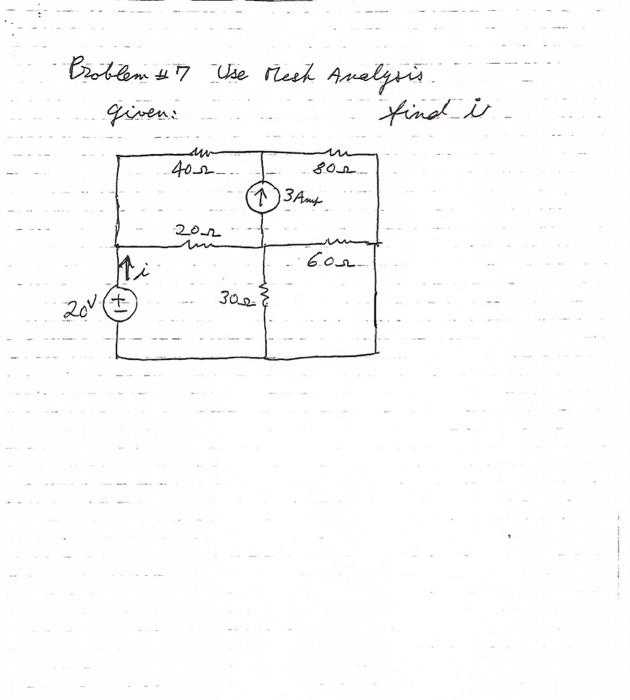 Problem #7 Use Mesh Analysis
given: find i
40Ω 80Ω
3 Amp
20Ω
60Ω
i
20V + - 30Ω